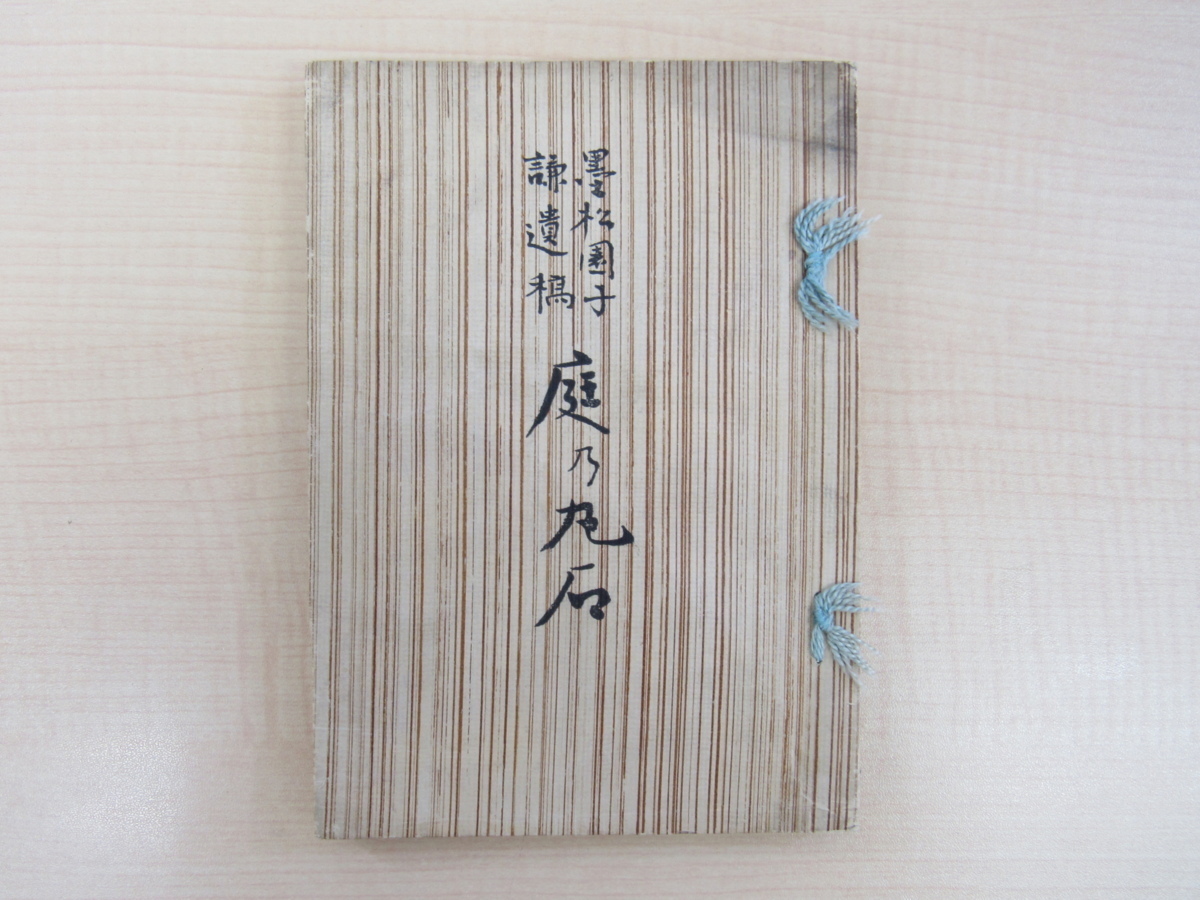 墨松園子
謙遺稿
庭乃丸石